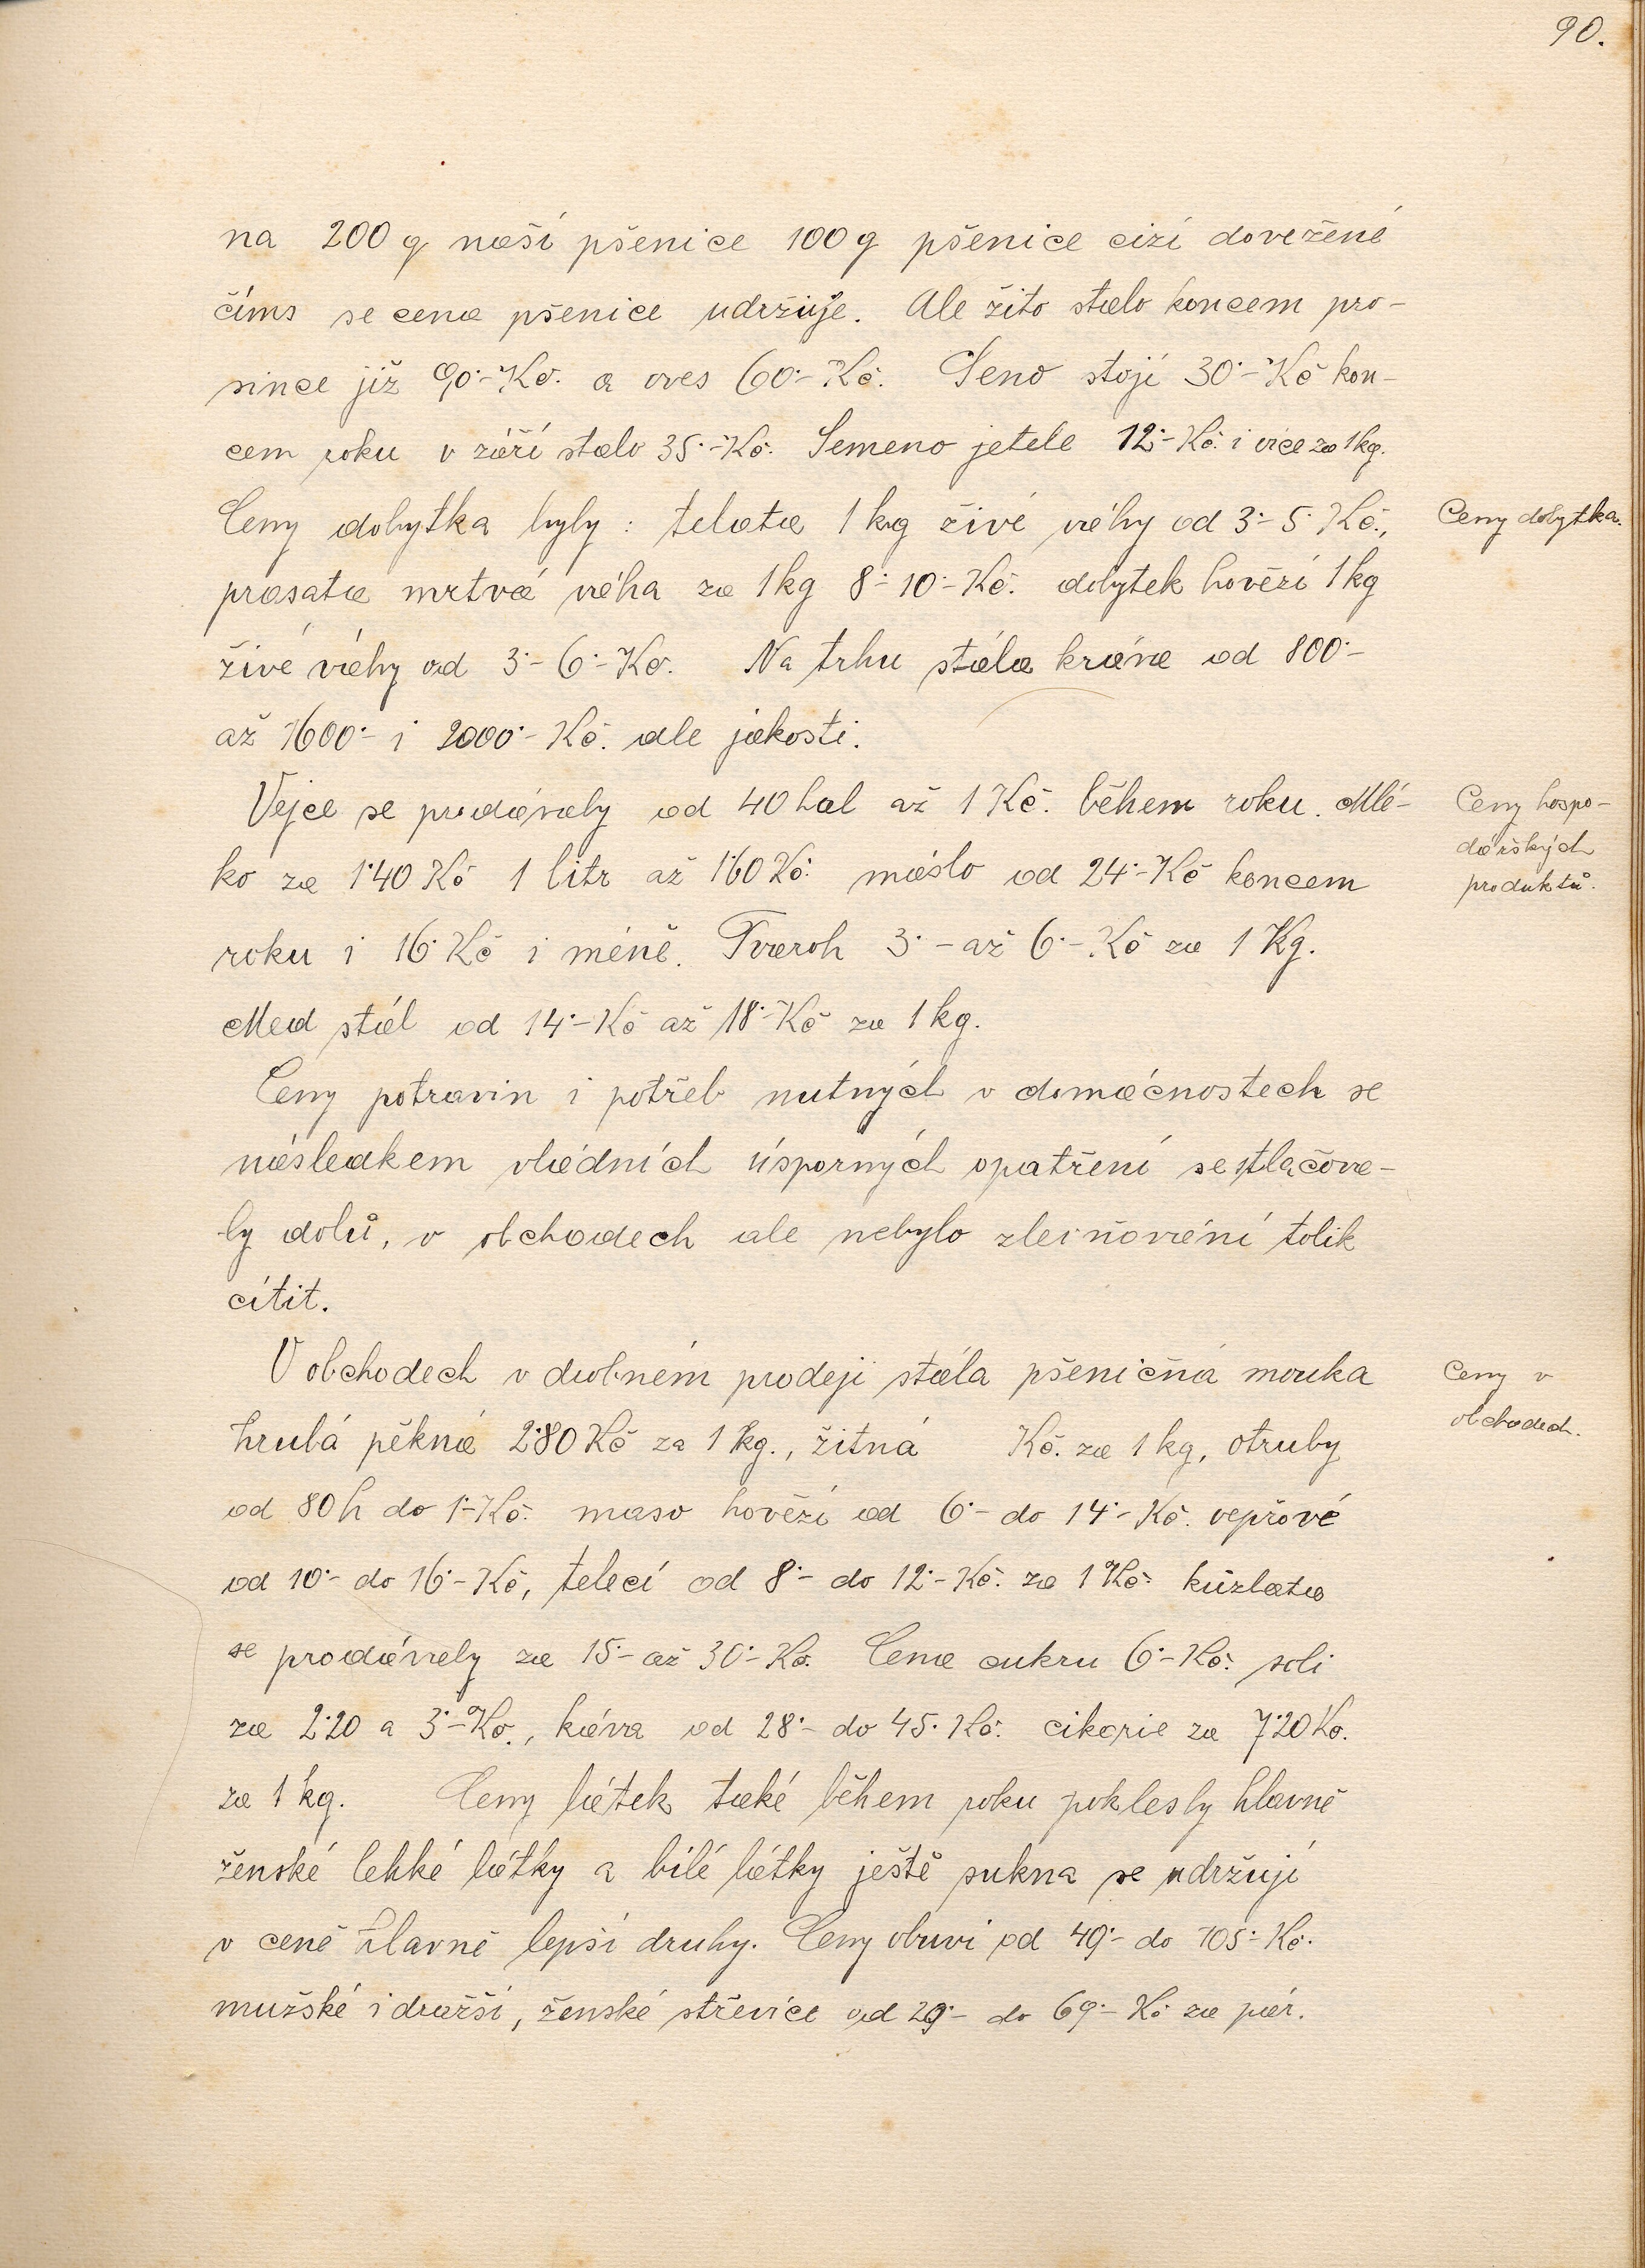 90.
na 200 q naší pšenice 100 q pšenice cizí dovežené
číms se cena pšenice udržuje. Ale žito stálo koncem pro-
since již 90·- Kč. a oves 60·- Kč. Seno stojí 30·- Kč kon-
cem roku v září stálo 35·- Kč. Semeno jetele 12·- Kč. i více za 1 kg.
Ceny dobytka byly: telata 1 kg živé váhy od 3·- 5· Kč.,
Ceny dobytka.
prasata mrtvá váha za 1 kg 8·- 10·- Kč. dobytek hovězí 1 kg
živé váhy od 3·- 6·- Kč. Na trhu stála kráva od 800·-
až 1600·- i 2000·- Kč. dle jakosti.
Vejce se prodávaly od 40 hal až 1 Kč. během roku. Mlé-
ko za 1·40 Kč 1 litr až 1·60 Kč. máslo od 24·- Kč koncem
roku i 16· Kč i méně. Tvaroh 3·- až 6·- Kč za 1 Kg.
Ceny hospo-
dářských
produktů.
Med stál od 14·- Kč až 18·- Kč za 1 kg.
Ceny potravin i potřeb nutných v domácnostech se
následkem vládních úsporných opatření se stlačova-
ly dolů, v obchodech ale nebylo zlevňování tolik
cítit.
V obchodech v drobném prodeji stála pšeničná mouka
hrubá pěkná 2·80 Kč za 1 kg., žitná Kč. za 1 kg, otruby
Ceny v
obchodech.
od 80 h do 1·- Kč. maso hovězí od 6·- do 14·- Kč. vepřové
od 10·- do 16·- Kč, telecí od 8·- do 12·- Kč. za 1 Kč. kůzlata
se prodávaly za 15·- až 30·- Kč. Cena cukru 6·- Kč. soli
za 2·20 a 3·- Kč., káva od 28·- do 45· Kč. cikorie za 7·20 Kč.
za 1 kg. Ceny látek také během roku poklesly hlavně
ženské lehké látky a bílé látky ještě sukna se udržují
v ceně hlavně lepší druhy. Ceny obuvi od 49·- do 105·- Kč.
mužské i dražší, ženské střevíce od 29·- do 69·- Kč za pár.